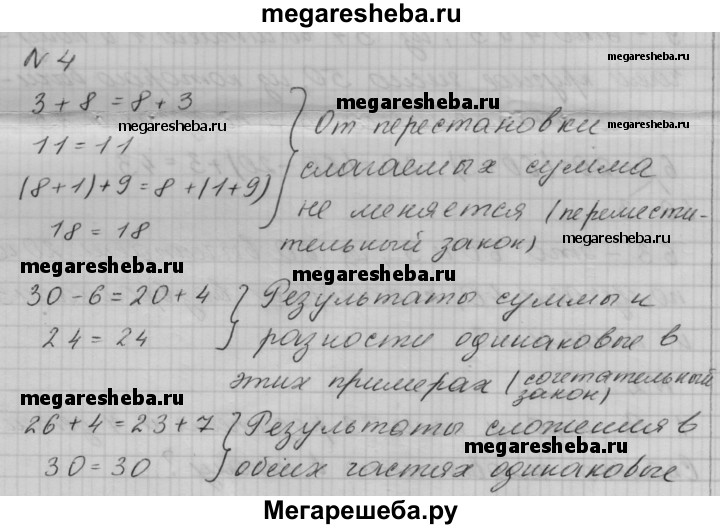 megaresheba.ru
N 4
3 + 8 = 8 + 3
megaresheba.ru
megaresheba.ru
От перестановки
11 = 11
слагаемых сумма
(8+1)+9 = 8+(1+9)
не меняется (перемести-
18 = 18
тельный закон)
megaresheba.ru
megaresheba.ru
30 - 6 = 20 + 4 } Результаты суммы и
24 = 24 разности одинаковые в
этих примерах (сочетательный
закон)
megaresheba.ru
26 + 4 = 23 + 7 } Результаты сложения в
megaresheba.ru
30 = 30 обеих частях одинаковые
Мегарешеба.ру